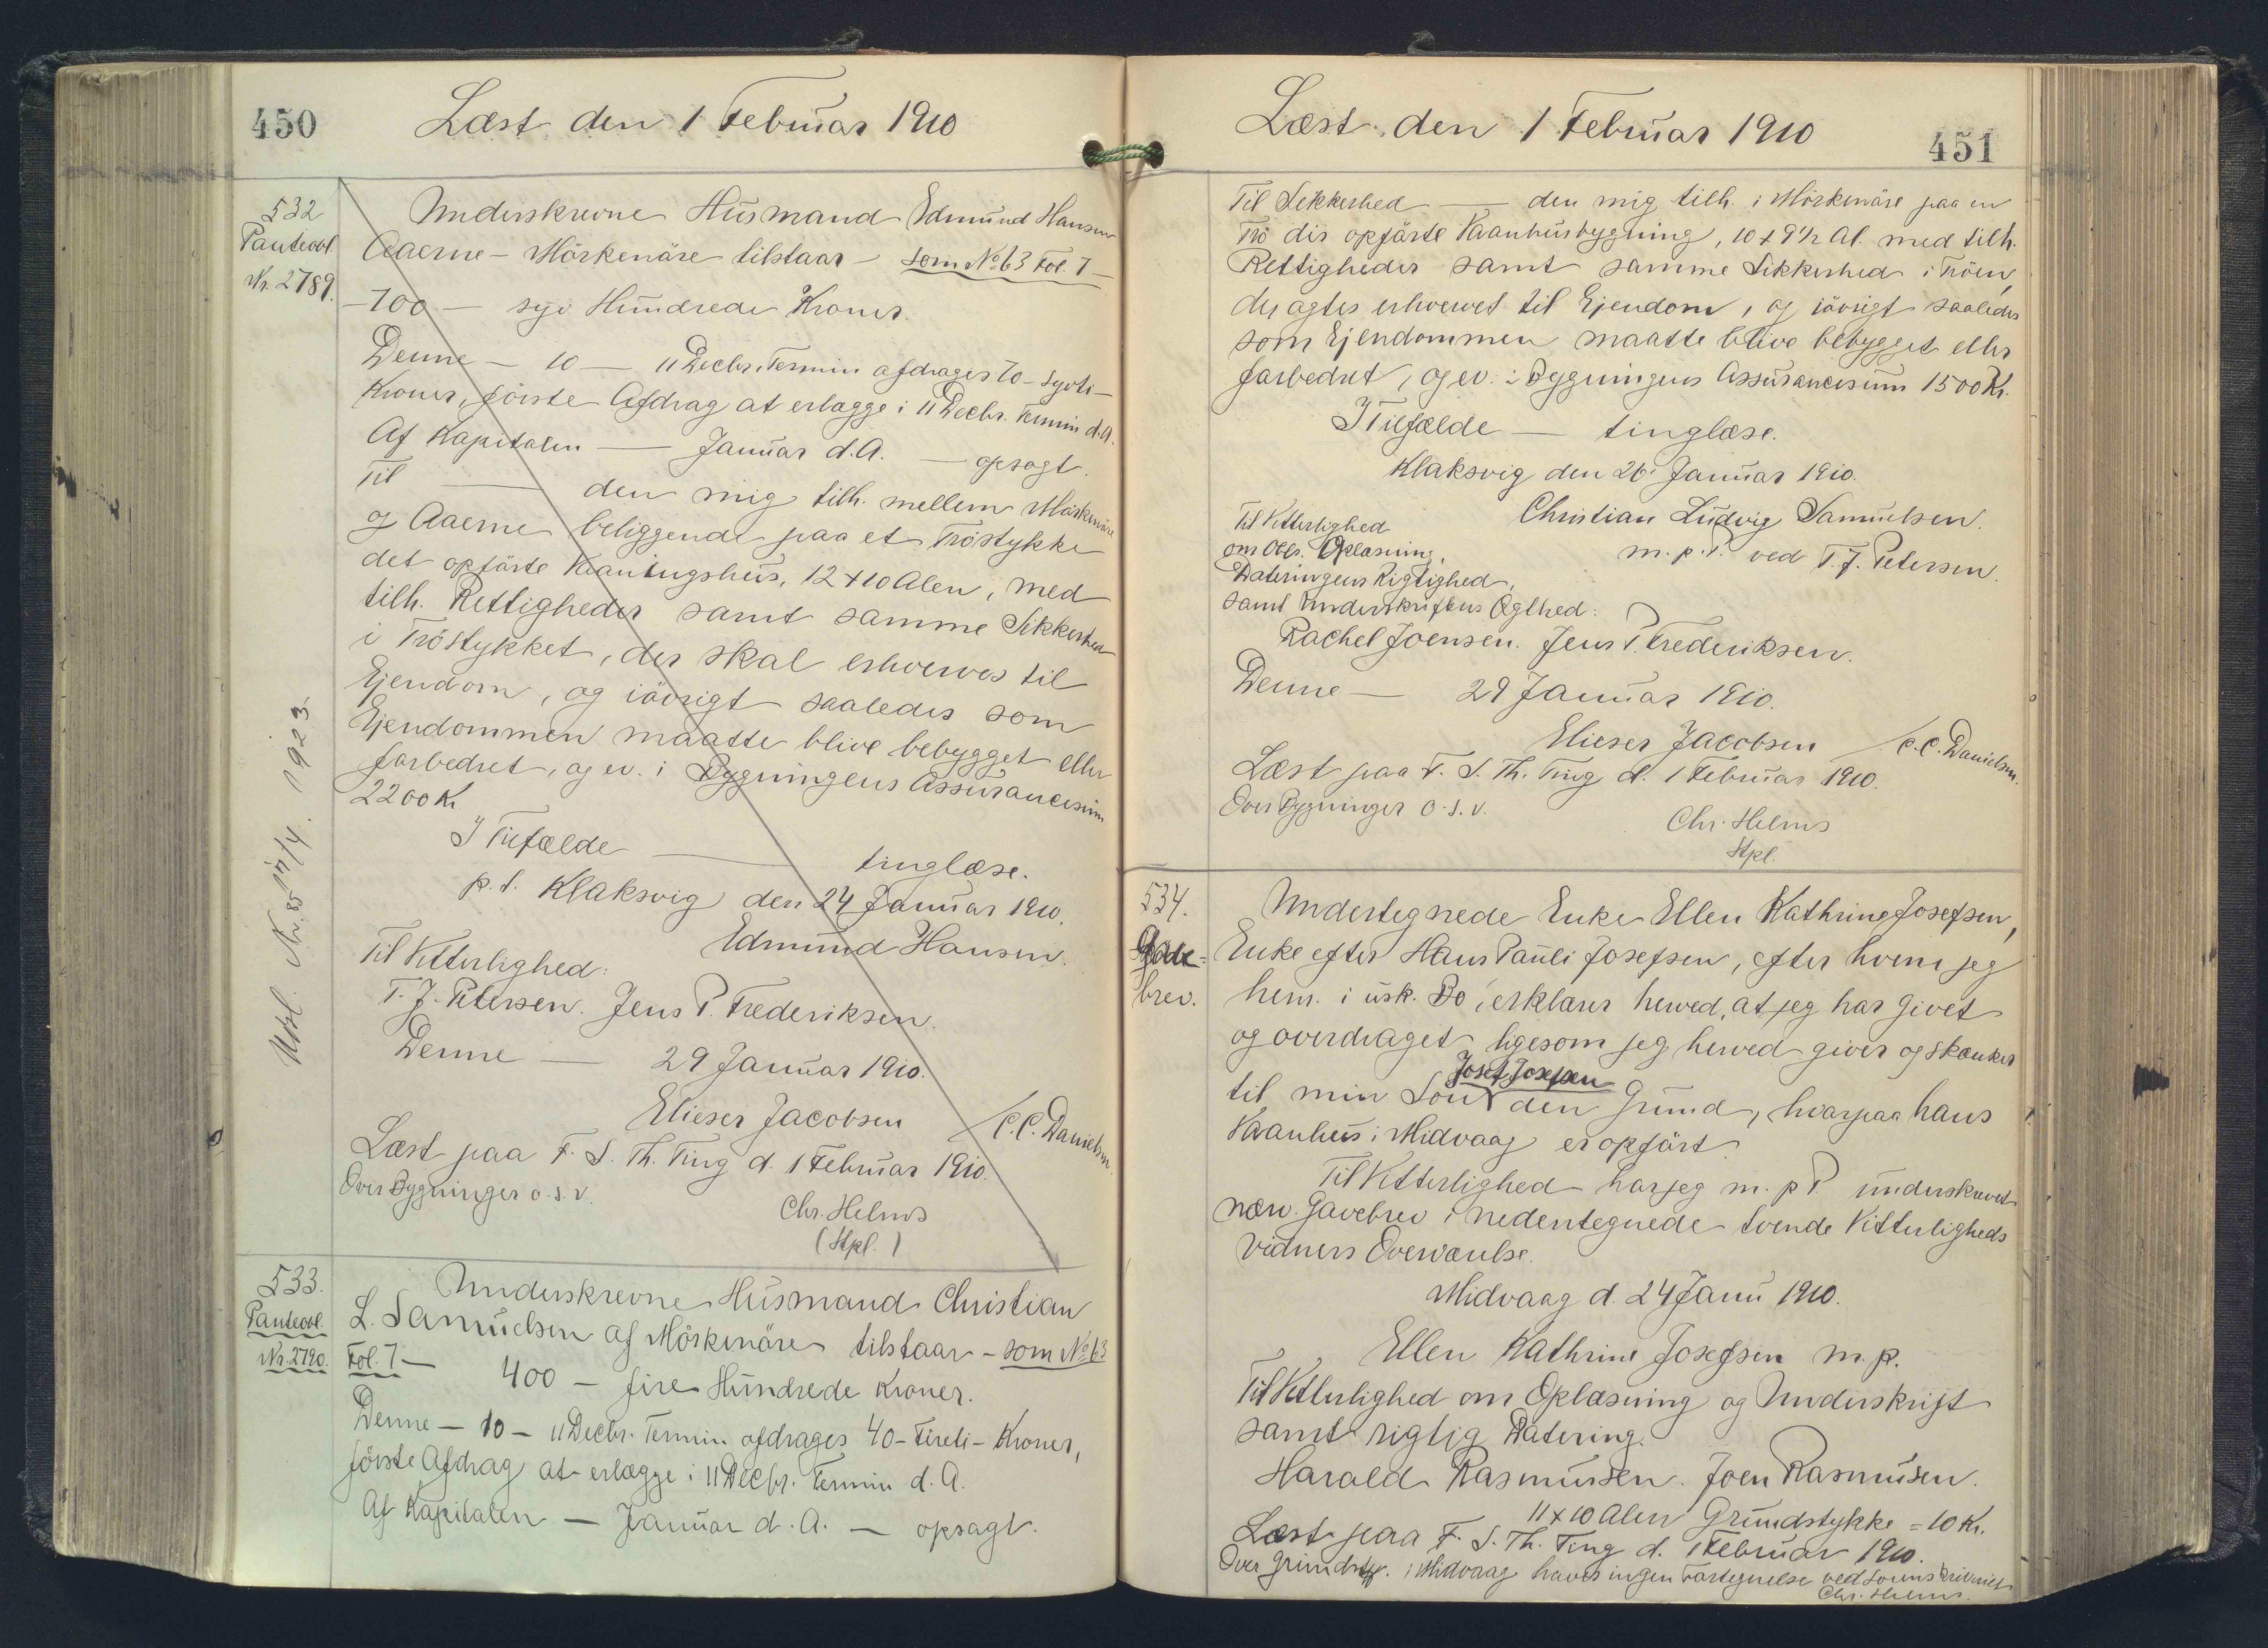 450
Læst den 1 Februar 1910
532
Panteobl.
Nr. 2789.
Underskrevne Husmand Edmund Hansen
Aaerne - Mörkenäre tilstaar - som No 63 Fol. 7 -
- 700 - syv Hundrede Kroner.
Denne - 10 - 11 Decbr. Termin afdrages 70 - syvti -
Kroner, förste Afdrag at erlægge i 11 Decbr. Termin d.A.
Af Kapitalen - Januar d.A. - opsagt.
Til - den mig tilh. mellem Mörkenäre
og Aaerne beliggende paa et Tröstykke
det opförte Vaaningshus, 12 x 10 Alen, med
tilh. Rettigheder samt samme Sikkerhed
i Tröstykket, der skal erhverves til
Ejendom, og iövrigt saaledes som
Ejendommen maatte blive bebygget eller
forbedret, og ev. i Bygningens Assurancesum
2200 Kr.
I Tilfælde - tinglæse.
p.t. Klaksvig den 24 Januar 1910.
Edmund Hansen.
Til Vitterlighed:
T. J. Petersen. Jens P. Frederiksen.
Denne - 29 Januar 1910.
Elieser Jacobsen / C.C. Danielsen.
Læst paa F. S. Th. Ting d. 1 Februar 1910.
Over Bygninger o.s.v.
Chr. Helms
(Stpl.)
Udsl. Nr. 85 17/4. 1923.
533.
Panteobl.
Nr. 2790.
Underskrevne Husmand Christian
L. Samuelsen af Mörkenäre tilstaar - som No 63
Fol. 7 - 400 - fire Hundrede Kroner.
Denne - 10 - 11 Decbr. Termin afdrages 40 - Fireti - Kroner,
förste Afdrag at erlægge i 11 Decbr. Termin d. A.
Af Kapitalen - Januar d. A. - opsagt.
Læst den 1 Februar 1910
451
Til Sikkerhed - den mig tilh. i Mörkenäre paa en
Trö der opförte Vaanhusbygning, 10 x 9 1/2 Al. med tilh.
Rettigheder samt samme Sikkerhed i Tröen,
der agtes erhvervet til Ejendom, og iövrigt saaledes
som Ejendommen maatte blive bebygget eller
forbedret, og ev. i Bygningens Assurancesum 1500 Kr.
I Tilfælde - tinglæse.
Klaksvig den 26 Januar 1910.
Christian Ludvig Samuelsen.
m. p. P. ved T. J. Petersen.
Til Vitterlighed
om Obls. Oplæsning,
Dateringens Rigtighed,
samt Underskriftens Ægthed:
Rachel Joensen. Jens P. Frederiksen.
Denne - 29 Januar 1910.
Elieser Jacobsen / C.C. Danielsen.
Læst paa F. S. Th. Ting d. 1 Februar 1910.
Over Bygninger o.s.v.
Chr. Helms
Stpl.
534.
Gave=
brev.
Undertegnede Enke Ellen Kathrine Josefsen,
Enke efter Hans Pauli Josefsen, efter hvem jeg
hens. i usk. Bo, erklærer herved, at jeg har givet
og overdraget ligesom jeg herved giver og skænker
Josef Josefsen
til min Sön den Grund, hvorpaa hans
Vaanhus i Midvaag er opfört.
Til Vitterlighed har jeg m. p. P. underskrevet
nærv. Gavebrev i nedentegnede tvende Vitterligheds
vidners Overværelse.
Midvaag d. 24 Janu 1910.
Ellen Kathrine Josefsen m.p.
Til Vitterlighed om Oplæsning og Underskrift
samt rigtig Datering.
Harald Rasmussen. Joen Rasmussen.
11 x 10 Alen Grundstykke = 10 Kr.
Læst paa F. S. Th. Ting d. 1 Februar 1910.
Over Grundstk. i Midvaag haves ingen Fortegnelse ved Sorenskriveriet
Chr. Helms.